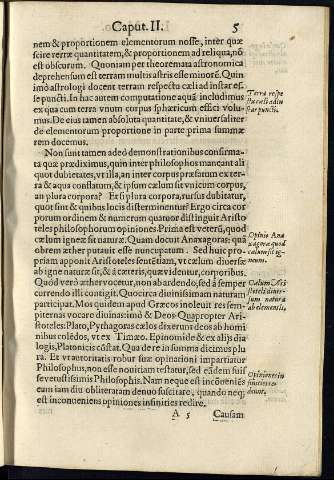 Caput. II. 5
nem & proportionem elementorum nosse, inter quæ
scire terræ quantitatem, & proportionem ad reliqua, nõ
est obscurum. Quoniam per theoremata astronomica
deprehensum est terram multis astris esse minorẽ. Quin
imò astrologi docent terram respectu cæli ad instar es-
se puncti. In hac autem computatione aquã includimus
ex qua cum terra vnum corpus sphæricum effici volu-
mus. De eius tamen absoluta quantitate, & vniuersaliter
de elementorum proportione in parte prima summæ
rem docemus.
Terra respe
par puncti.
Non sunt tamen adeò demonstrationibus confirma-
ta quæ prædiximus, quin inter philosophos maneant ali
quot dubietates, vt illa, an inter corpus præfatum ex ter-
ra & aqua conflatum, & ipsum cælum sit vnicum corpus,
an plura corpora? Et si plura corpora, rursus dubitatur,
quot sint & quibus locis determinentur? Ergo circa cor
porum ordinem & numerum quatuor distinguit Aristo
teles philosophorum opiniones. Prima est veterũ, quòd
cælum igneæ sit naturæ. Quam docuit Anaxagoras: quã
obrem æther putauit esse nuncupatum. Sed huic pro-
priam apponit Aristoteles sententiam, vt cælum diuersæ
ab igne naturæ sit, & à cæteris, quæ videntur, corporibus.
Quòd verò æther vocetur, non ab ardendo, sed à semper
currendo illi contigit. Quocirca diuinissimam naturam
participat. Mos quidem apud Græcos inoleuit res sem-
piternas vocare diuinas: imò & Deos. Quapropter Ari-
stoteles: Plato, Pythagoras cælos dixerunt deos ab homi
nibus colẽdos, vt ex Timæo. Epinomide & ex alijs dia
logis, Platonicis cõstat. Qua de re in summa dicimus plu
ra. Et vt autoritatis robur suæ opinationi impartiatur
Philosophus, non esse nouitiam testatur, sed eadem fuis
se vetustissimis Philosophis. Nam neque est incõueniẽs
eum iam diu obliteratam denuo suscitare, quando neq;
est inconueniens opiniones infinities redire.
Opinio Ana
xagoræ quod
cælum sit ig-
neum.
Cælum Aris
toteles diuer-
sum natura
ab elementis,
Opiniones in
finities re-
deunt.
A 5 Causam